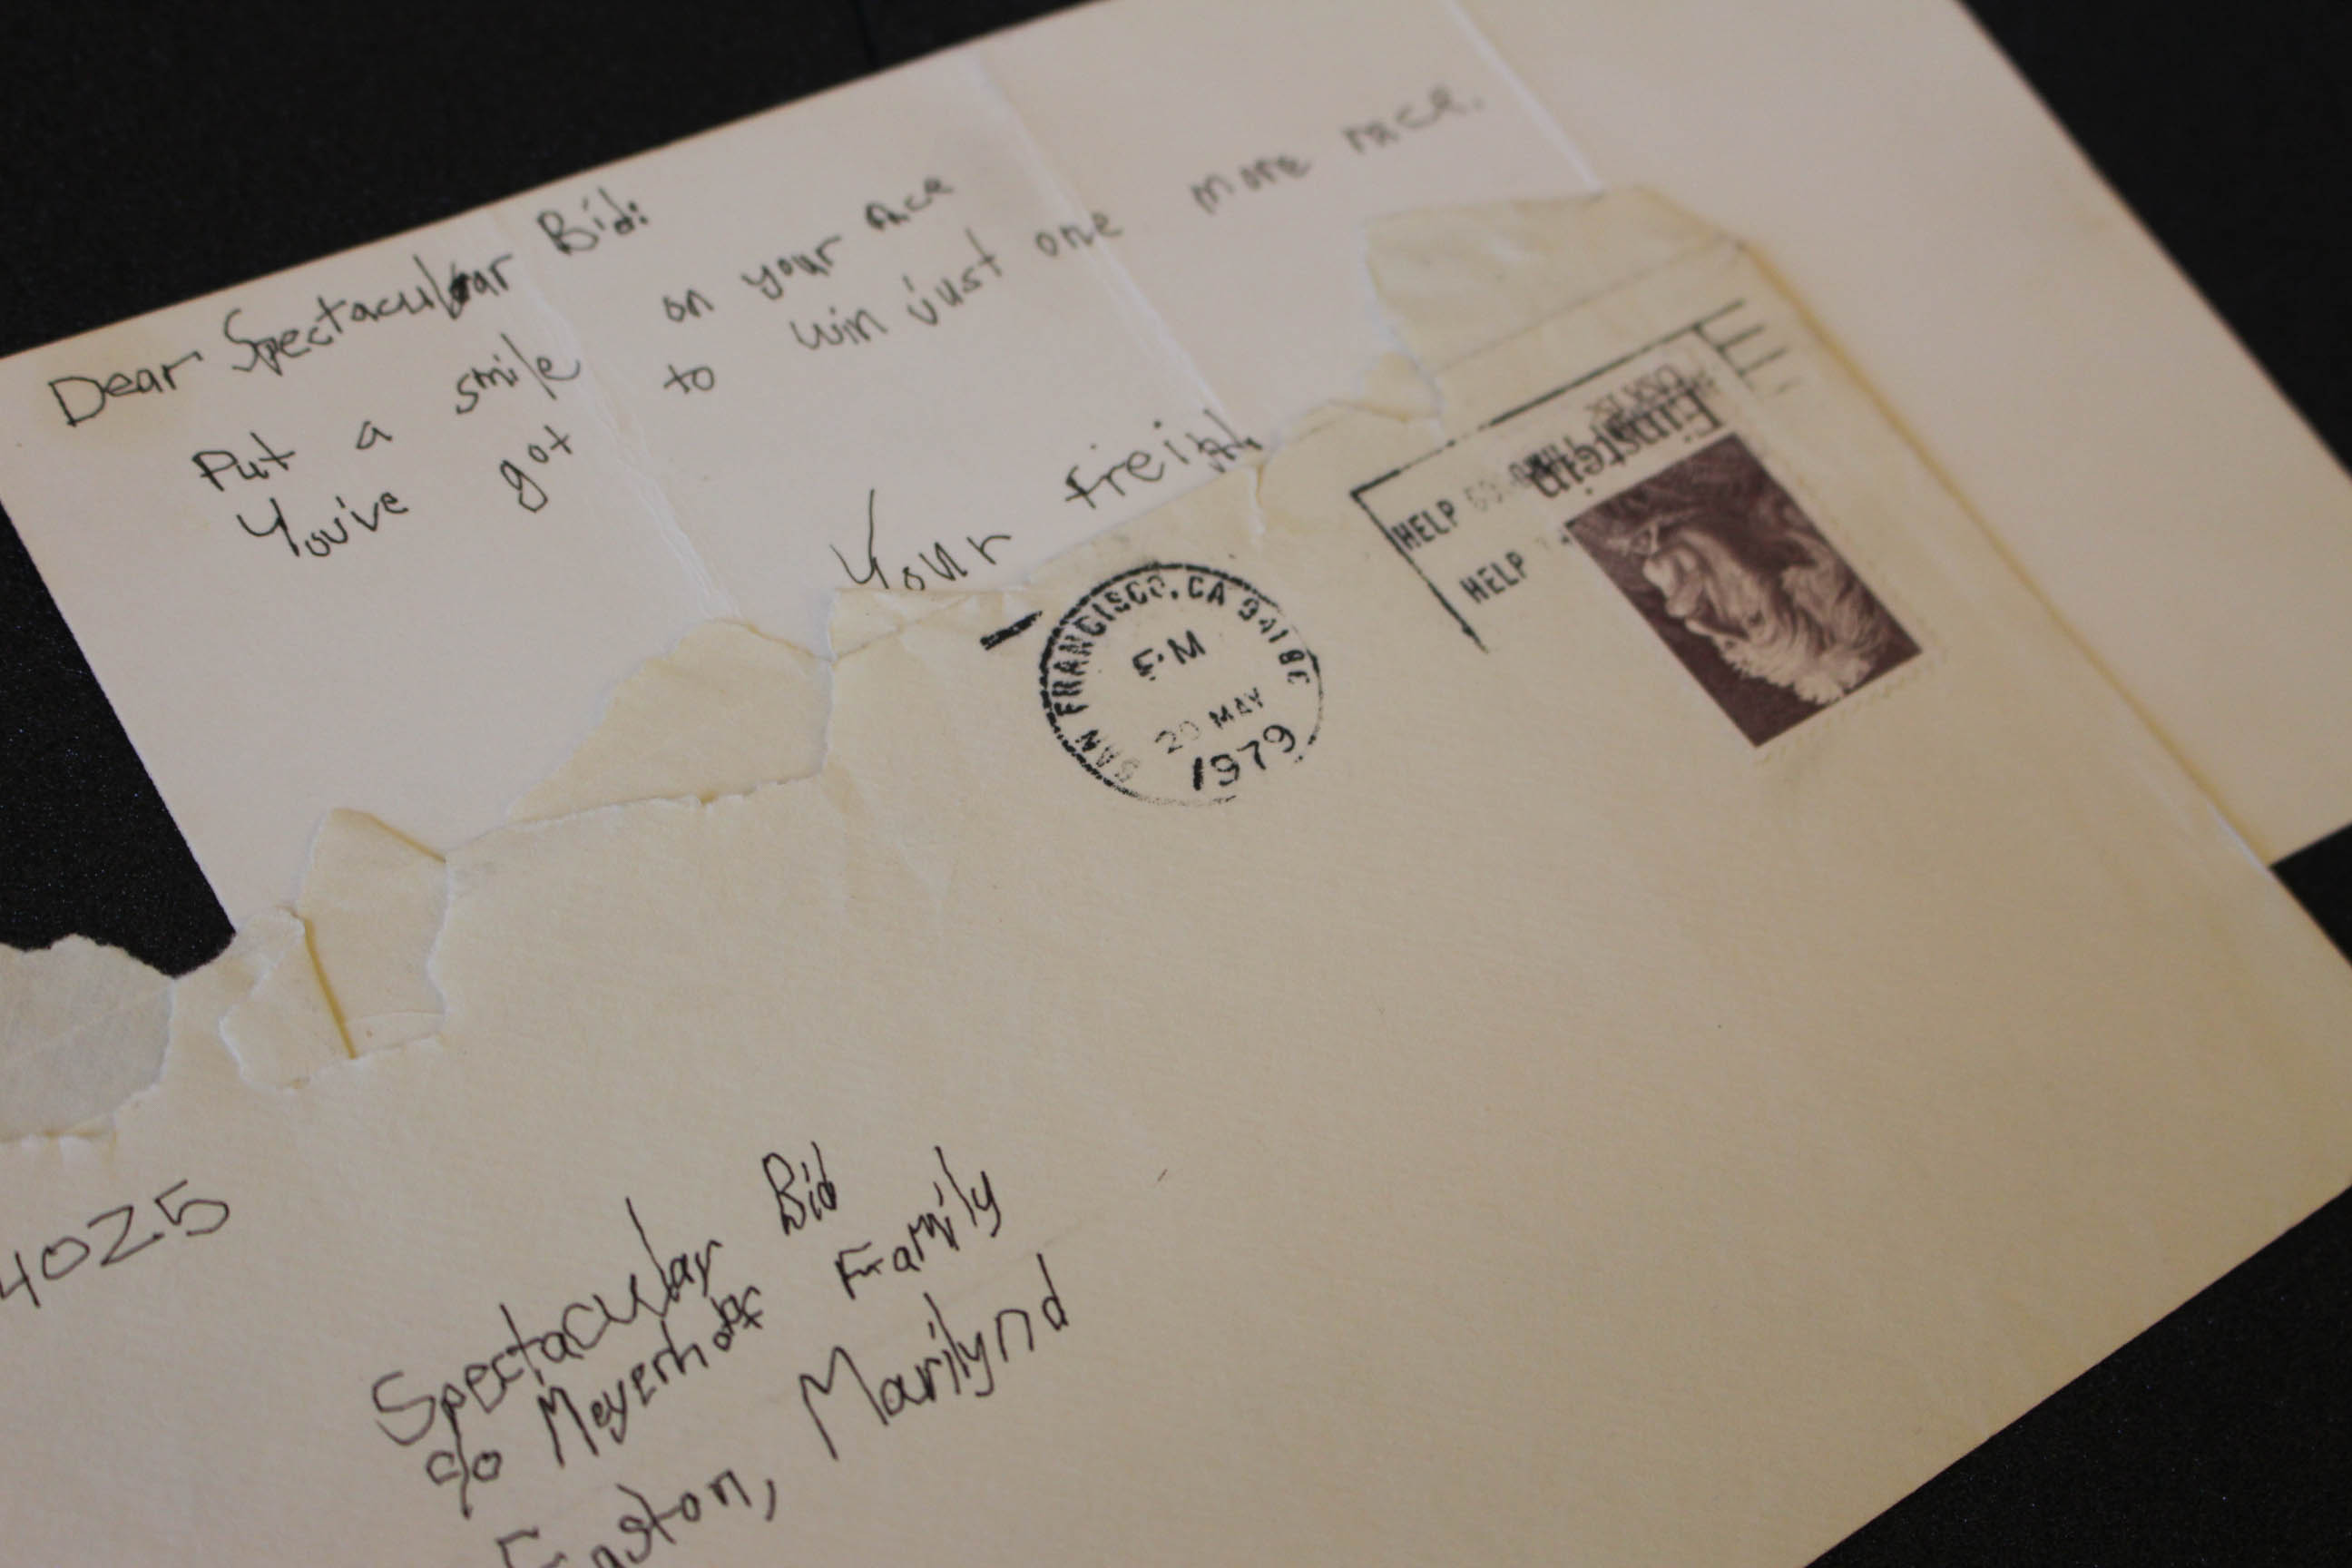 Dear Spectacular Bid:
Put a smile on your
You've got to win just one more race.
Your
SAN FRANCISCO, CA
PM
20 MAY
1979
HELP
HELP
Einstein
4025
Spectacular Bid
c/o Meyerhoff Family
Easton, Marilynd